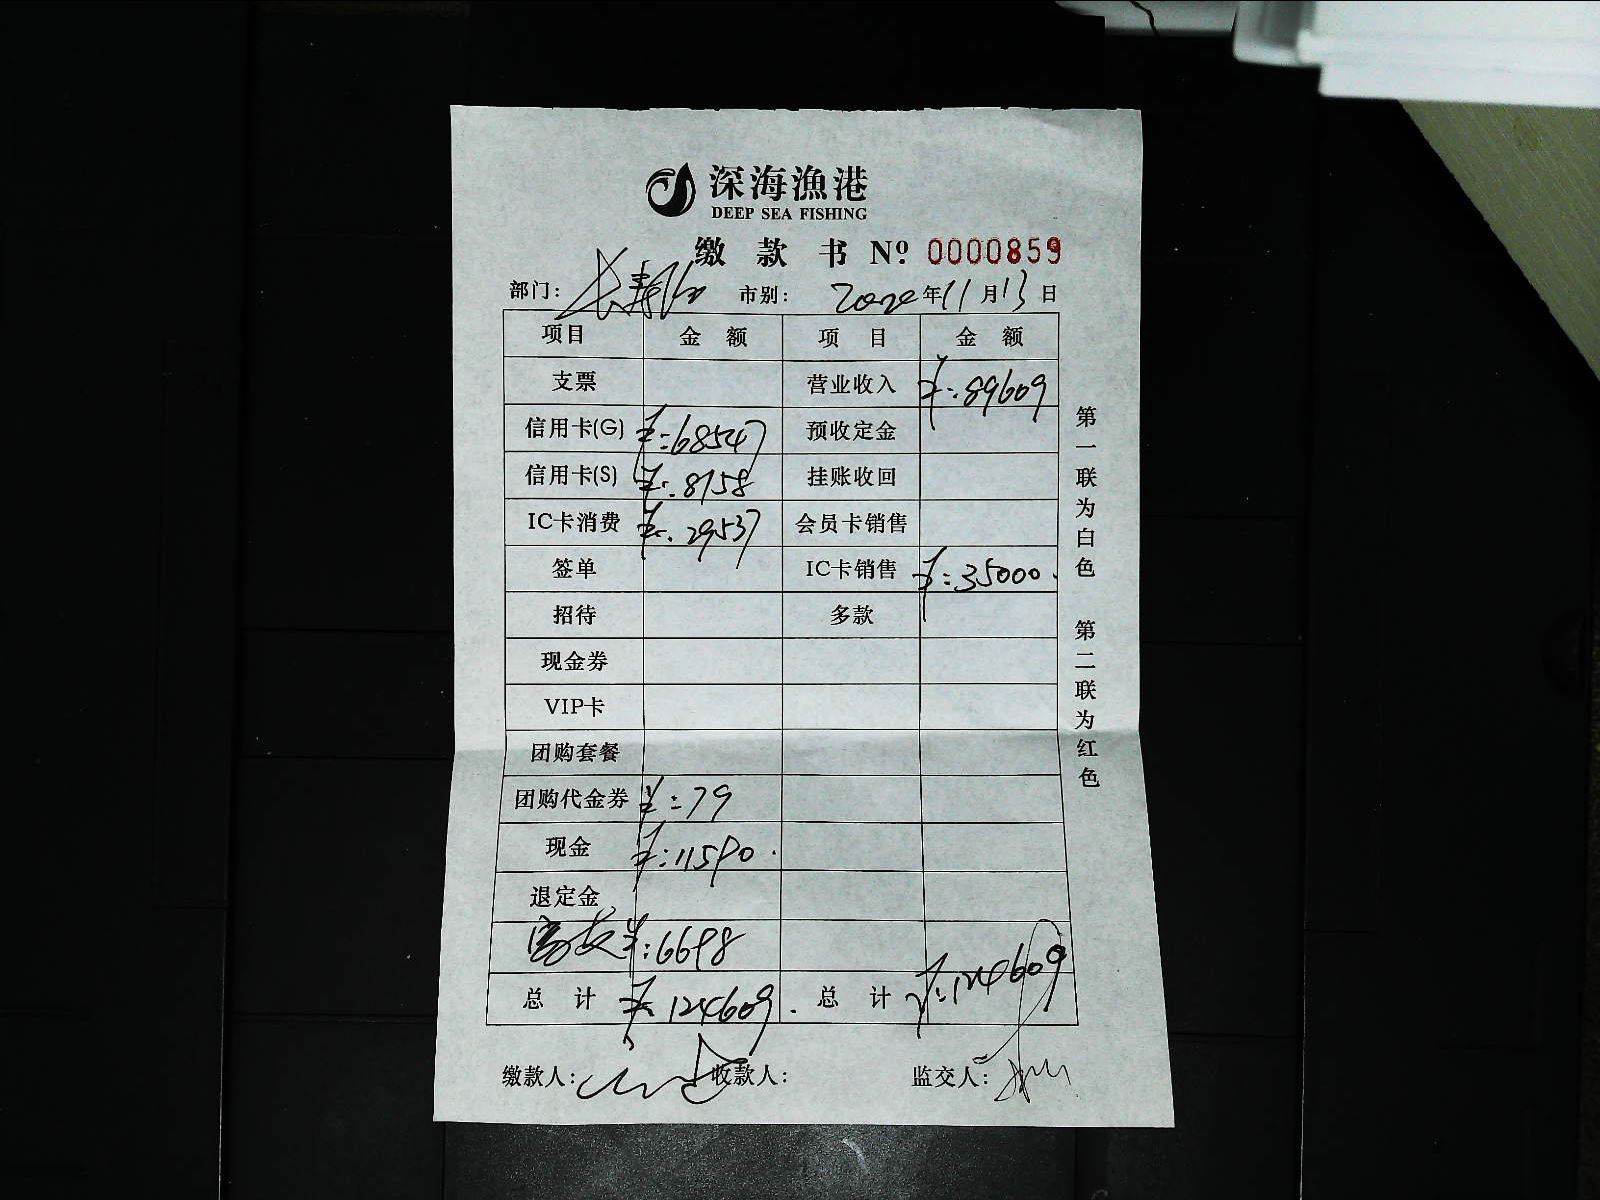 深海漁港
DEEP SEA FISHING
缴款书 Nº 0000859
部门：长寿路 市别：2020年11月13日
项目 金额 项目 金额
支票 营业收入 ¥:89609
信用卡(G) ¥:68547 预收定金
信用卡(S) ¥:8158 挂账收回
IC卡消费 ¥:29537 会员卡销售
签单 IC卡销售 ¥:35000.
招待 多款
现金券
VIP卡
团购套餐
团购代金券 ¥:79
现金 ¥:11590.
退定金
¥:6698
总计 ¥:124609. 总计 ¥:124609
缴款人： 收款人： 监交人：
第一联为白色 第二联为红色